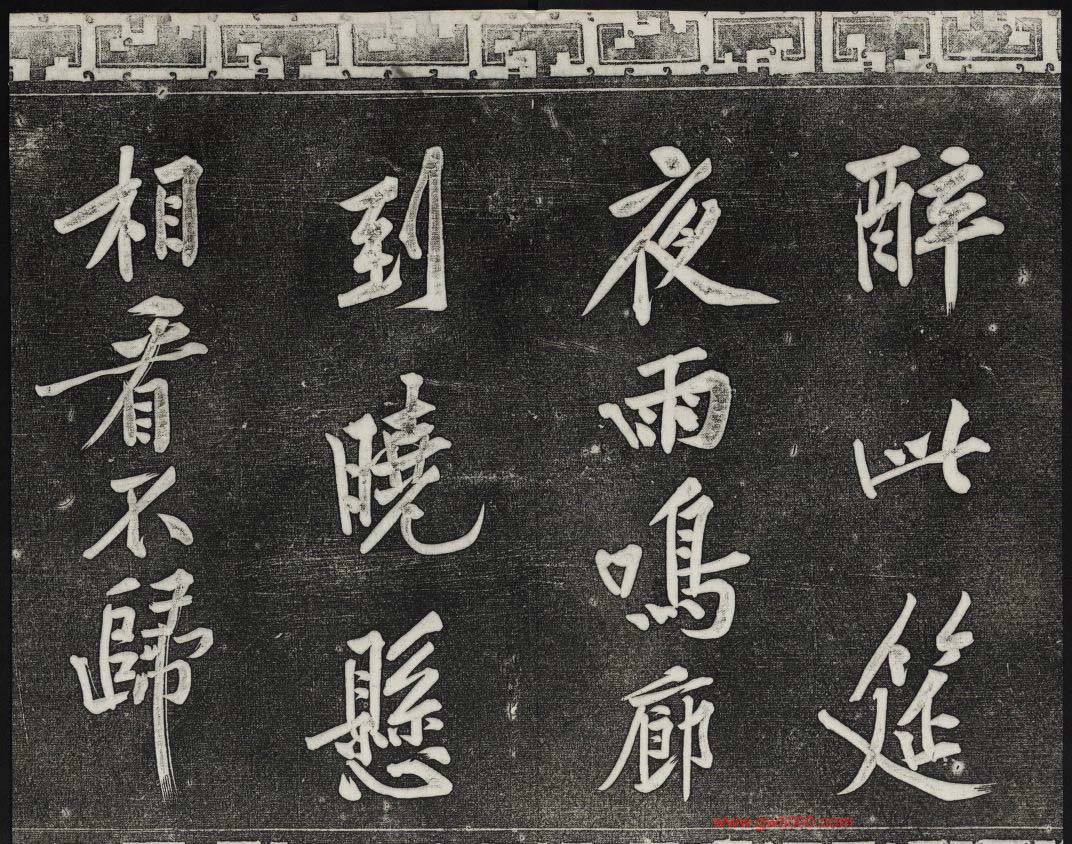 醉此筵
夜雨鳴廊
到曉懸
相看不歸